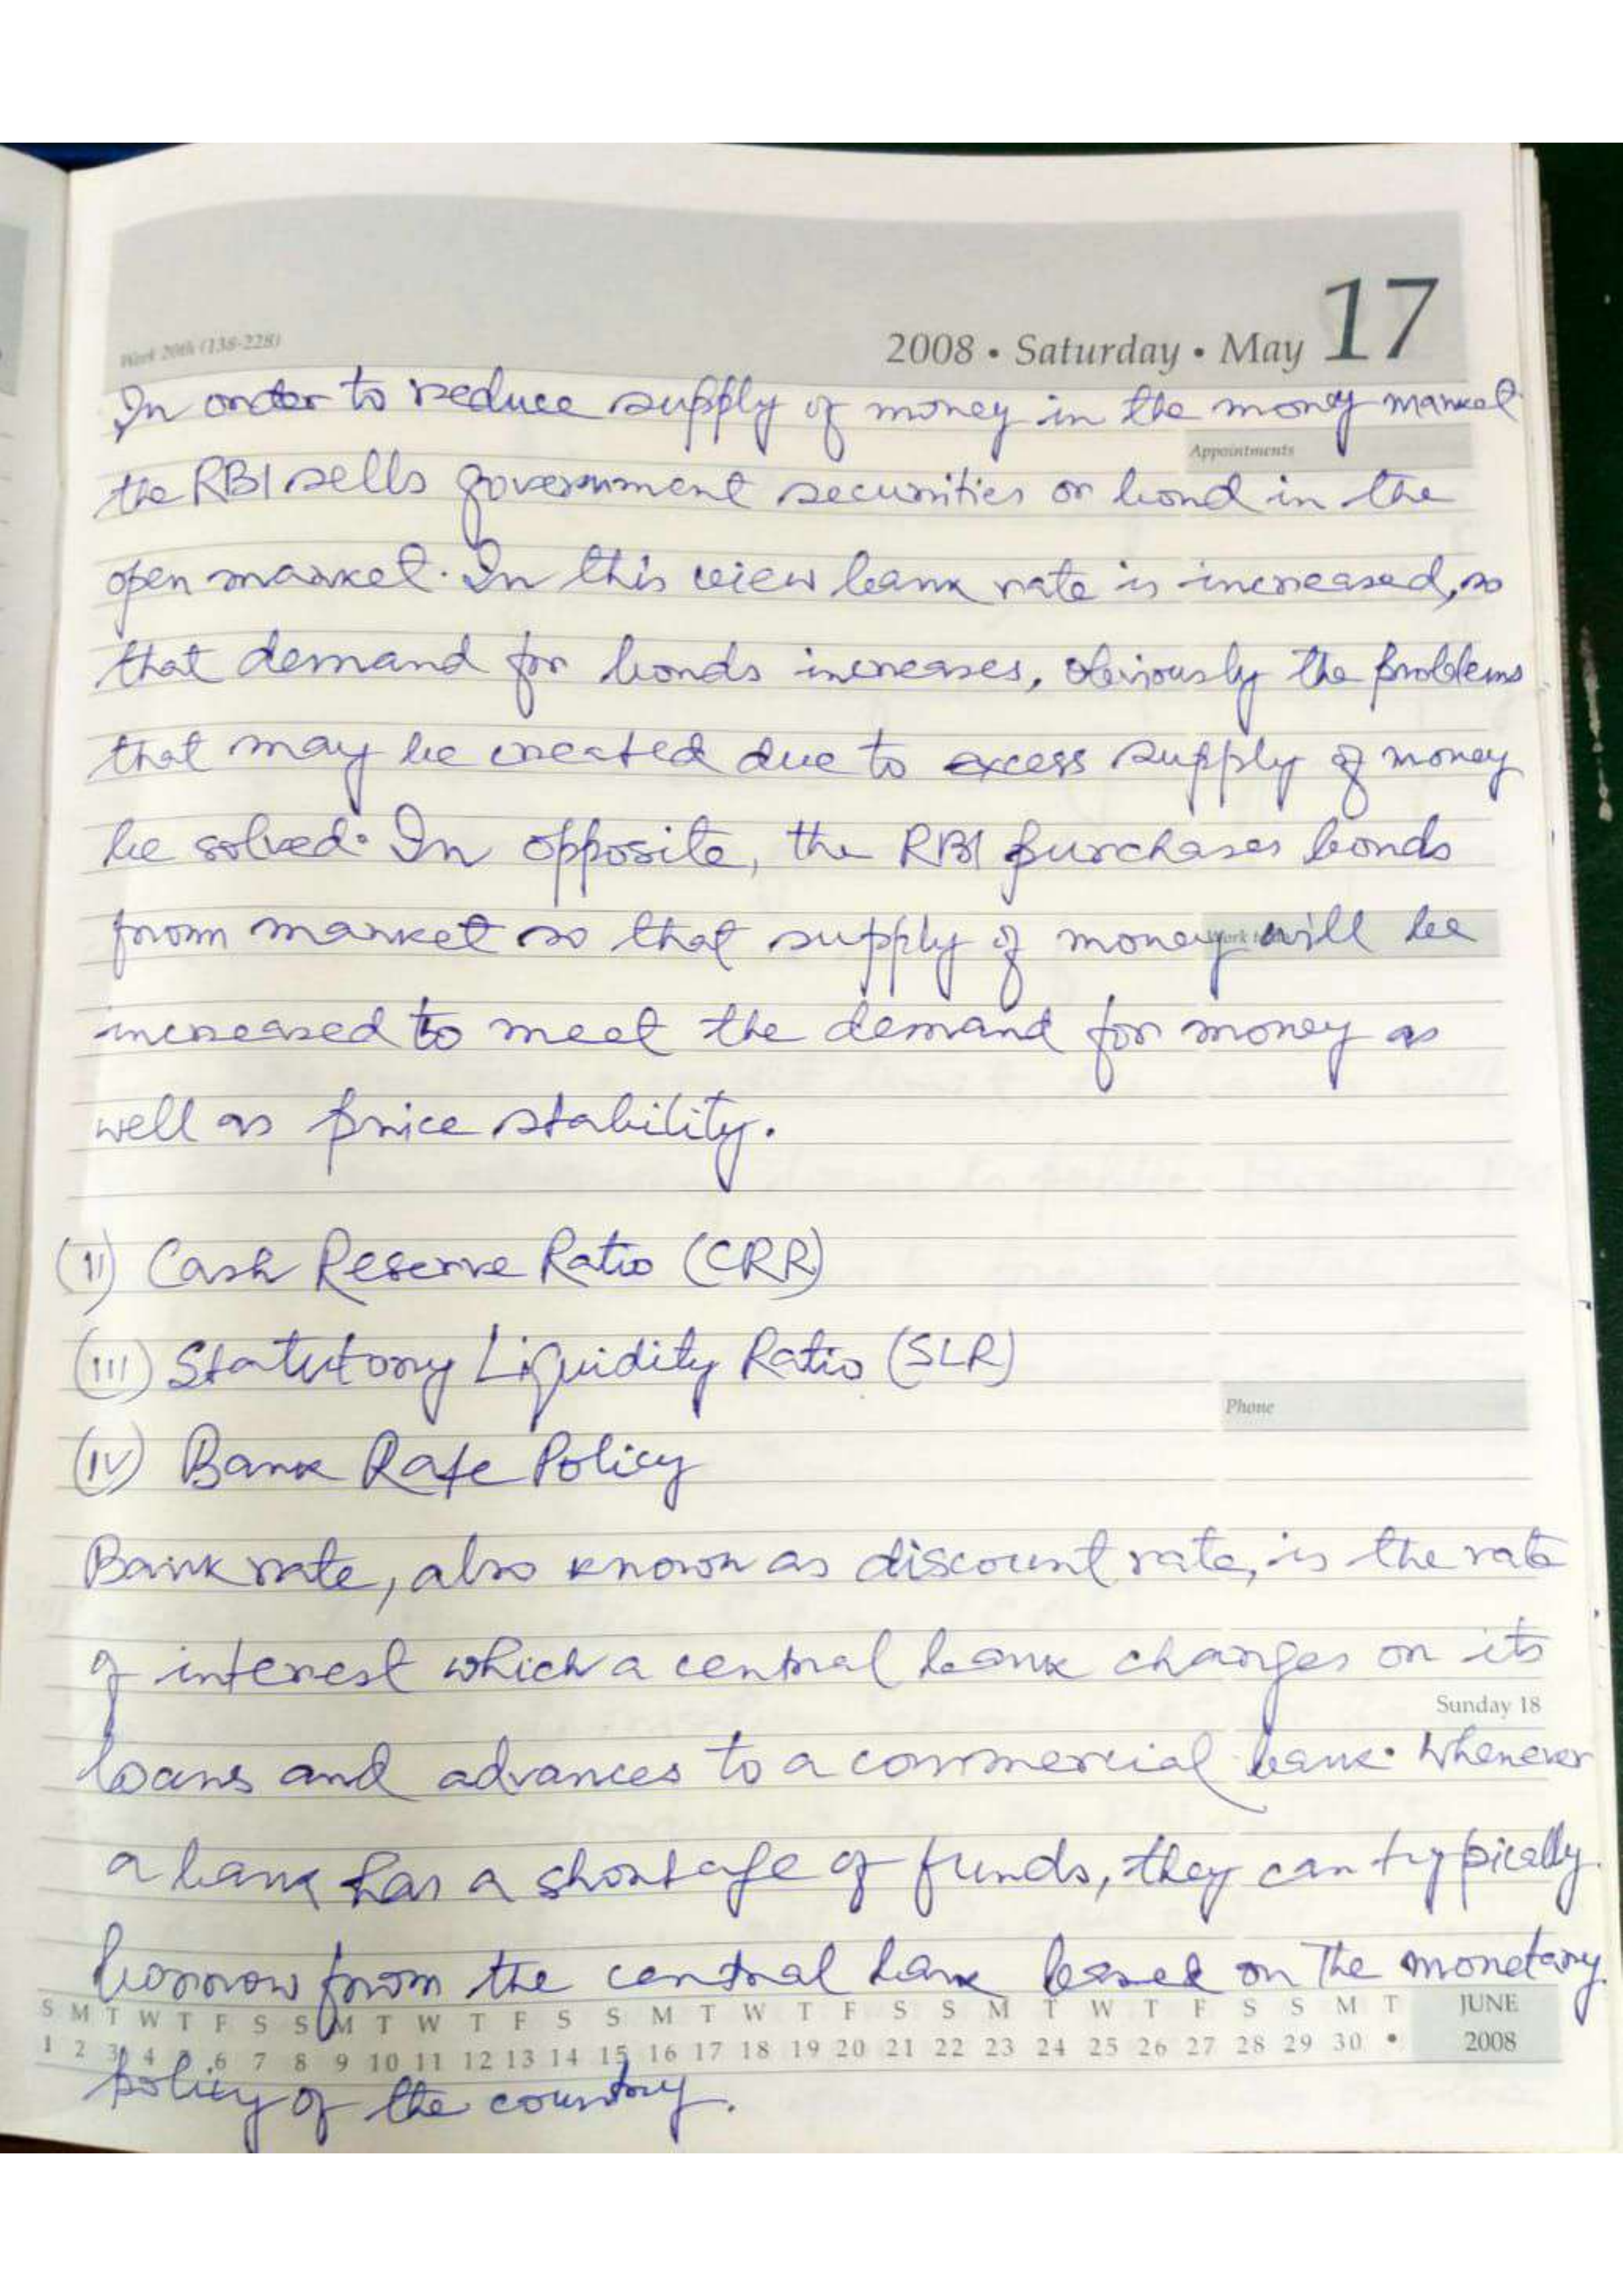 Week 20th (138-228)
2008 • Saturday • May 17
In order to reduce supply of money in the money market
Appointments
the RBI sells government securities or bond in the
open market. In this view bank rate is increased, so
that demand for bonds increases, obviously the problems
that may be created due to excess supply of money
be solved. In opposite, the RBI purchases bonds
from market so that supply of money will be
increased to meet the demand for money as
well as price stability.
(II) Cash Reserve Ratio (CRR)
(III) Statutory Liquidity Ratio (SLR)
Phone
(IV) Bank Rate Policy
Bank rate, also known as discount rate, is the rate
of interest which a central bank charges on its
Sunday 18
loans and advances to a commercial bank. Whenever
a bank has a shortage of funds, they can typically
borrow from the central bank based on the monetary
S M T W T F S S M T W T F S S M T W T F S S M T W T F S S M T JUNE
1 2 3 4 5 6 7 8 9 10 11 12 13 14 15 16 17 18 19 20 21 22 23 24 25 26 27 28 29 30 • 2008
policy of the country.